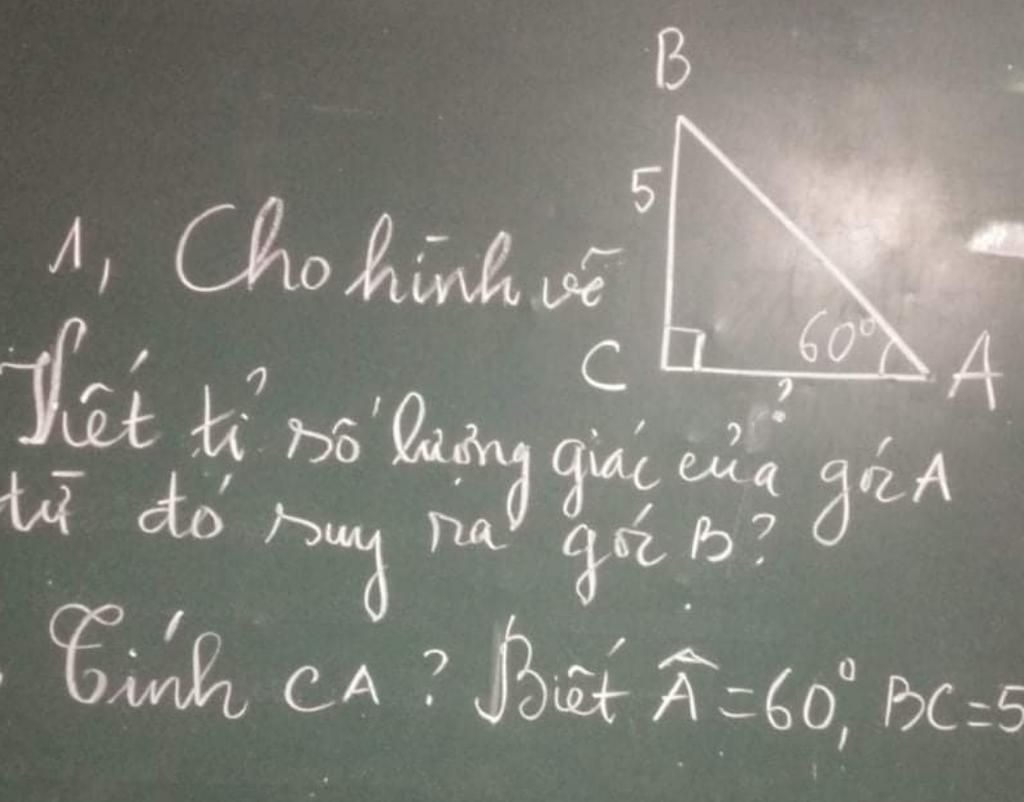 B
5
1, Cho hình vẽ
60°
C
A
?
Viết tỉ số lượng giác của góc A
từ đó suy ra góc B?
Tính CA? Biết Â=60°, BC=5